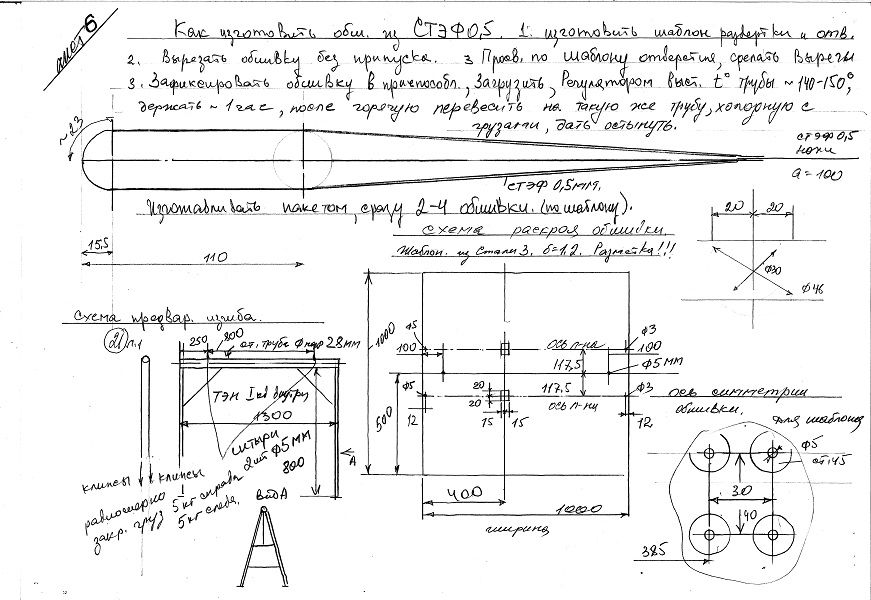 лист 6
Как изготовить обш. из СТЭФ 0,5. 1. изготовить шаблон развертки и отв.
2. Вырезать обшивку без припуска. 3 Просв. по шаблону отверстия, сделать вырезы
3. Зафиксировать обшивку в приспособл., загрузить, Регулятором выст. t° трубы ~140-150°,
держать ~1 час, после горячую перевесить на такую же трубу, холодную с
грузами, дать остынуть.
~23
СТЭФ 0,5
ножи
СТЭФ 0,5 мм.
a=100
Изготавливать пакетом, сразу 2-4 обшивки. (по шаблону).
20 20
схема раскроя обшивки.
Шаблон. из Стали 3. δ=1.2. Разметка!!!
15,5
110
Ф30
Ф46
схема предвар. изгиба.
21 п.1
250
800
ст. труба Ф нар 28 мм
ТЭН 1 кв внутри
1300
штыри
2 шт Ф5 мм
800
А
клипсы
клипсы
равномерно
закр. груз 5 кг справа
5 кг слева.
Вид А
1000
500
Ф5
100
ось л-на
Ф3
100
117,5
Ф5 мм
117,5
Ф5
20
20
ось л-на
Ф3
12
15 15
12
400
1000
ширина
ось симметрии
обшивки.
для шаблона
Ф5
от. 45
30
40
385